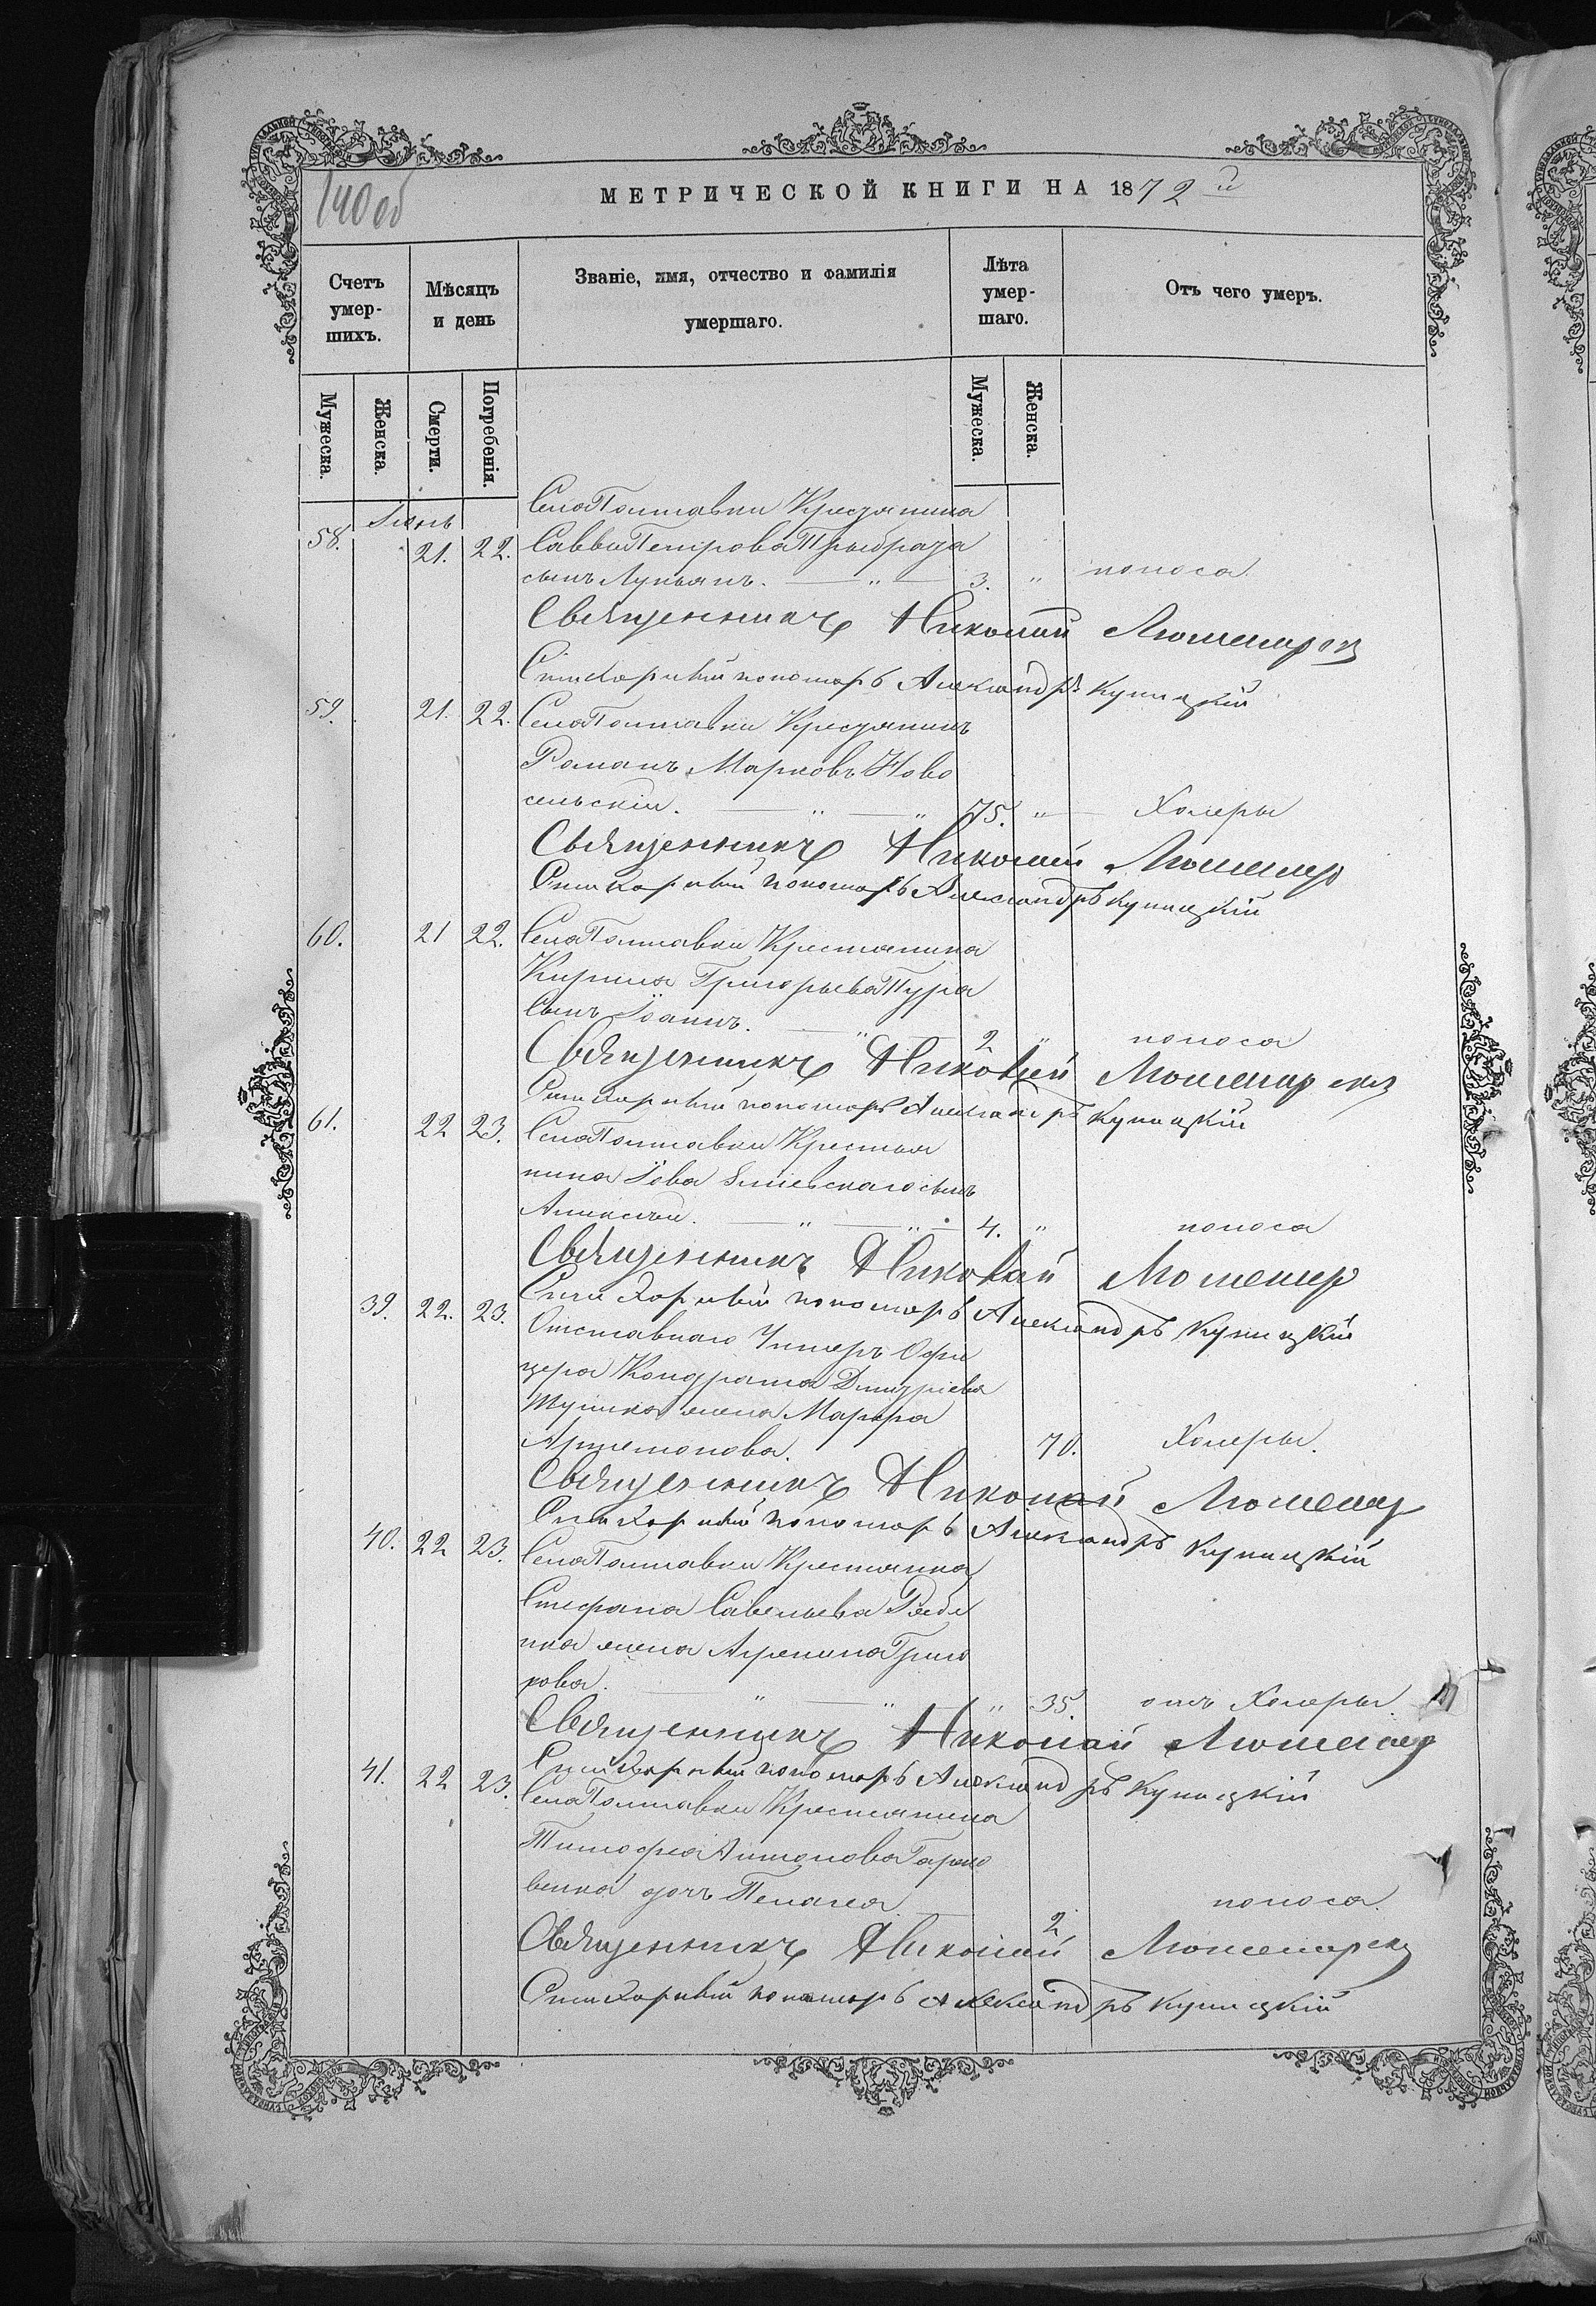 140 об
МЕТРИЧЕСКОЙ КНИГИ НА 1872й
Счетъ умершихъ.
Мѣсяцъ и день
Званіе, имя, отчество и фамилія умершаго.
Лѣта умершаго.
Отъ чего умеръ.
Мужеска.
Женска.
Смерти.
Погребенія.
Мужеска.
Женска.
Села Полтавки Крестянина
58. 21. 22. Саввы Петрова
сынъ Лукьянъ. — " — 3. " поноса.
Священникъ Николай
Стихарный пономарь Александръ Купицкій
59. 21. 22. Села Полтавки Крестянинъ
Романъ Марковъ Ново
сельскій. — " — " 75. " — Холеры
Священникъ Николай
Стихарный пономарь Александръ Купицкій
60. 21 22. Села Полтавки Крестянина
Кирила Григорьева
сынъ Іоаннъ. — " 2 " поноса
Священникъ Николай
Стихарный пономарь Александръ Купицкій
61. 22 23. Села Полтавки Крестья
нина Іова сынъ
Алексѣй. — " — " — 4. " поноса
Священникъ Николай
Стихарный пономарь Александръ Купицкій
39. 22. 23. Отставнаго Унтеръ Офи
цера Кондрата Дмитріева
жена Марфа
Артемонова. 70. Холеры.
Священникъ Николай
Стихарный пономарь Александръ Купицкій
40. 22 23. Села Полтавки Крестянина
Стефана Савельева Рябе
нка жена Агрепина Григо
рова. — " — " " 35. отъ Холеры.
Священникъ Николай
Стихарный пономарь Александръ Купицкій
41. 22 23. Села Полтавки Крестянина
Тимофея Антонова
венка дочь Пелагея — 2 поноса.
Священникъ Николай
Стихарный пономарь Александръ Купицкій